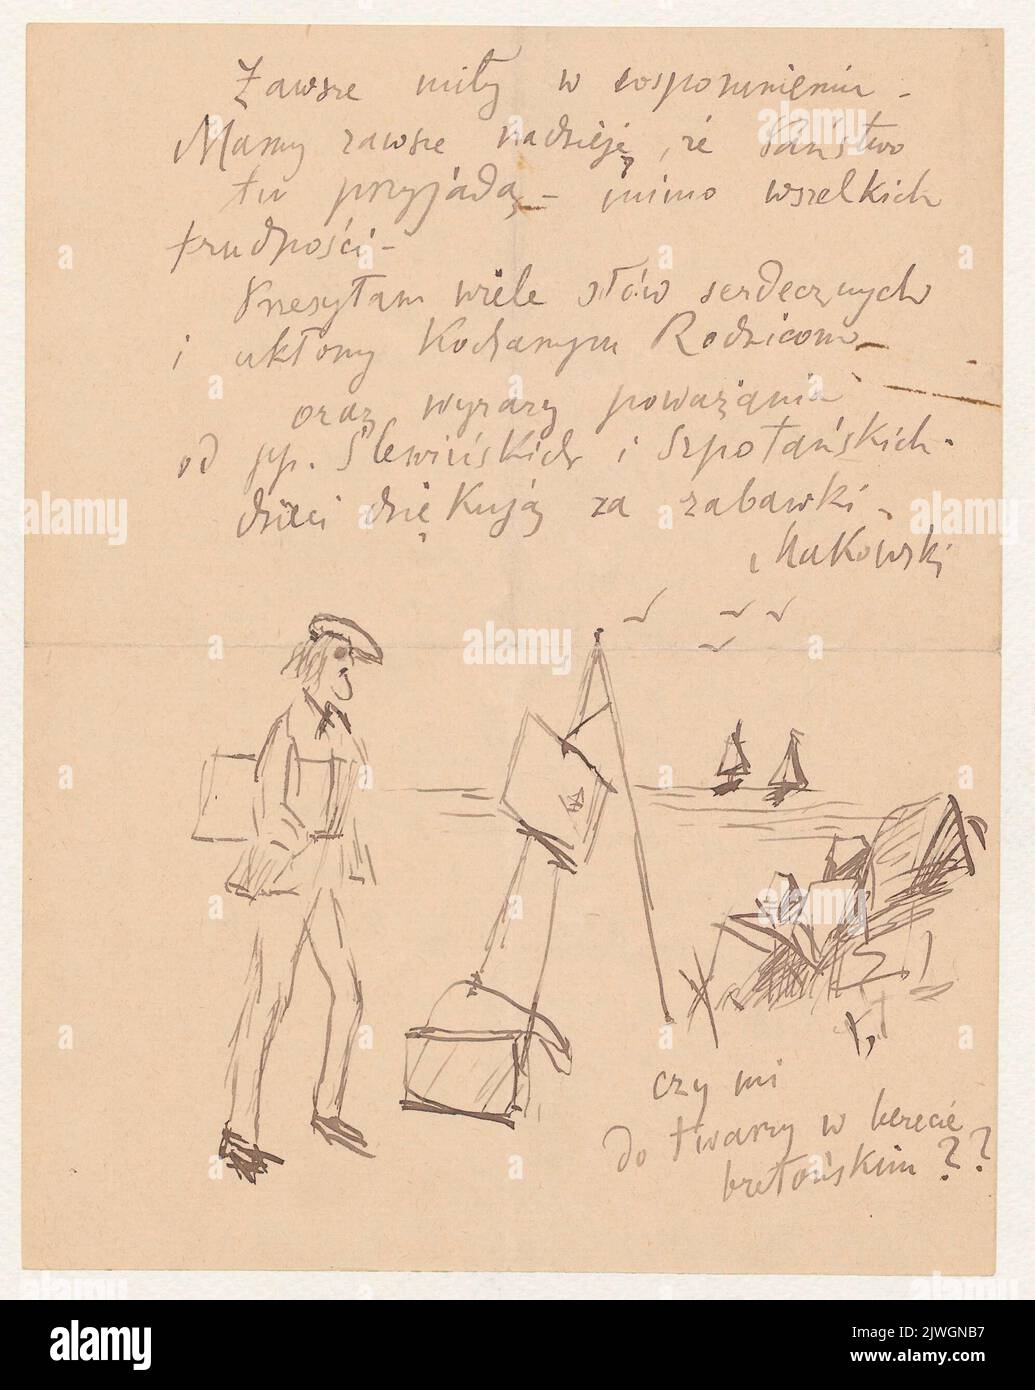 Zawsze miły w wospomnieniu -
Mamy zawsze nadzieję, że Państwo
tu przyjadą - mimo wszelkich
trudności -
Przesyłam wiele słów serdecznych
i ukłony Kochanym Rodzicom -
oraz wyrazy poważania
od pp. Slewińskich i Szpotańskich.
dzieci dziękują za zabawki -
Makowski
czy mi
do twarzy w berecie
bretońskim??
alamy
Image ID: 2JWGNB7
www.alamy.com